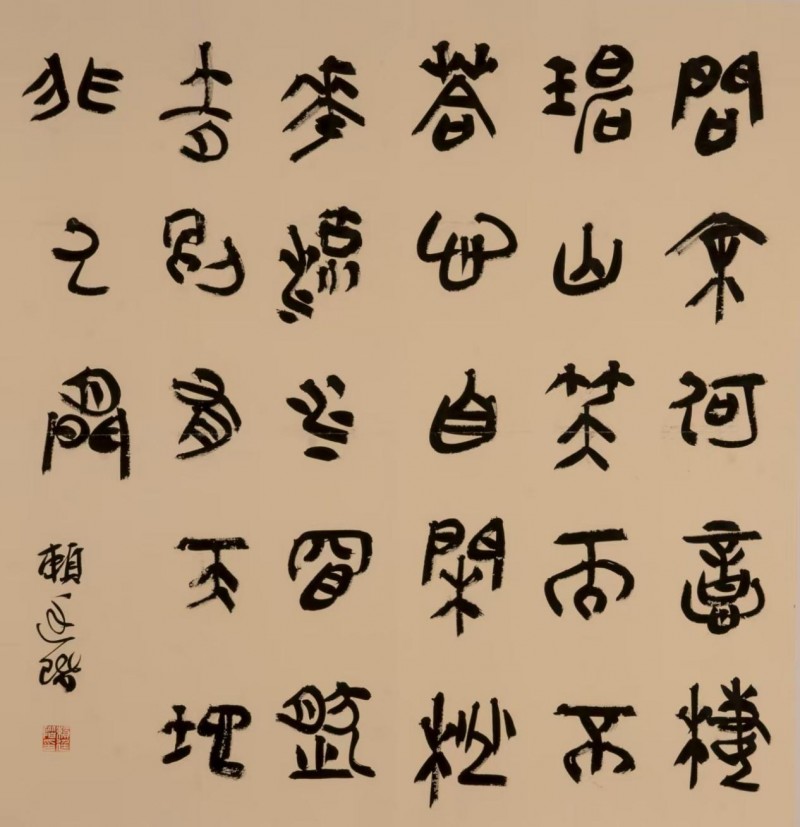 問余何意棲
碧山笑而不
答心自閑桃
華流水窅然
去別有天地
非人間
賴廷階